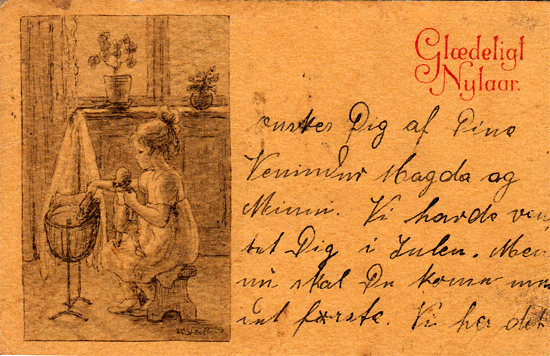 Glædeligt
Nytaar.
ønskes Dig af Dine
Veninder Magda og
Minni. Vi havde ven
tet Dig i Julen. Men
nu skal Du komme
det første. Vi har det